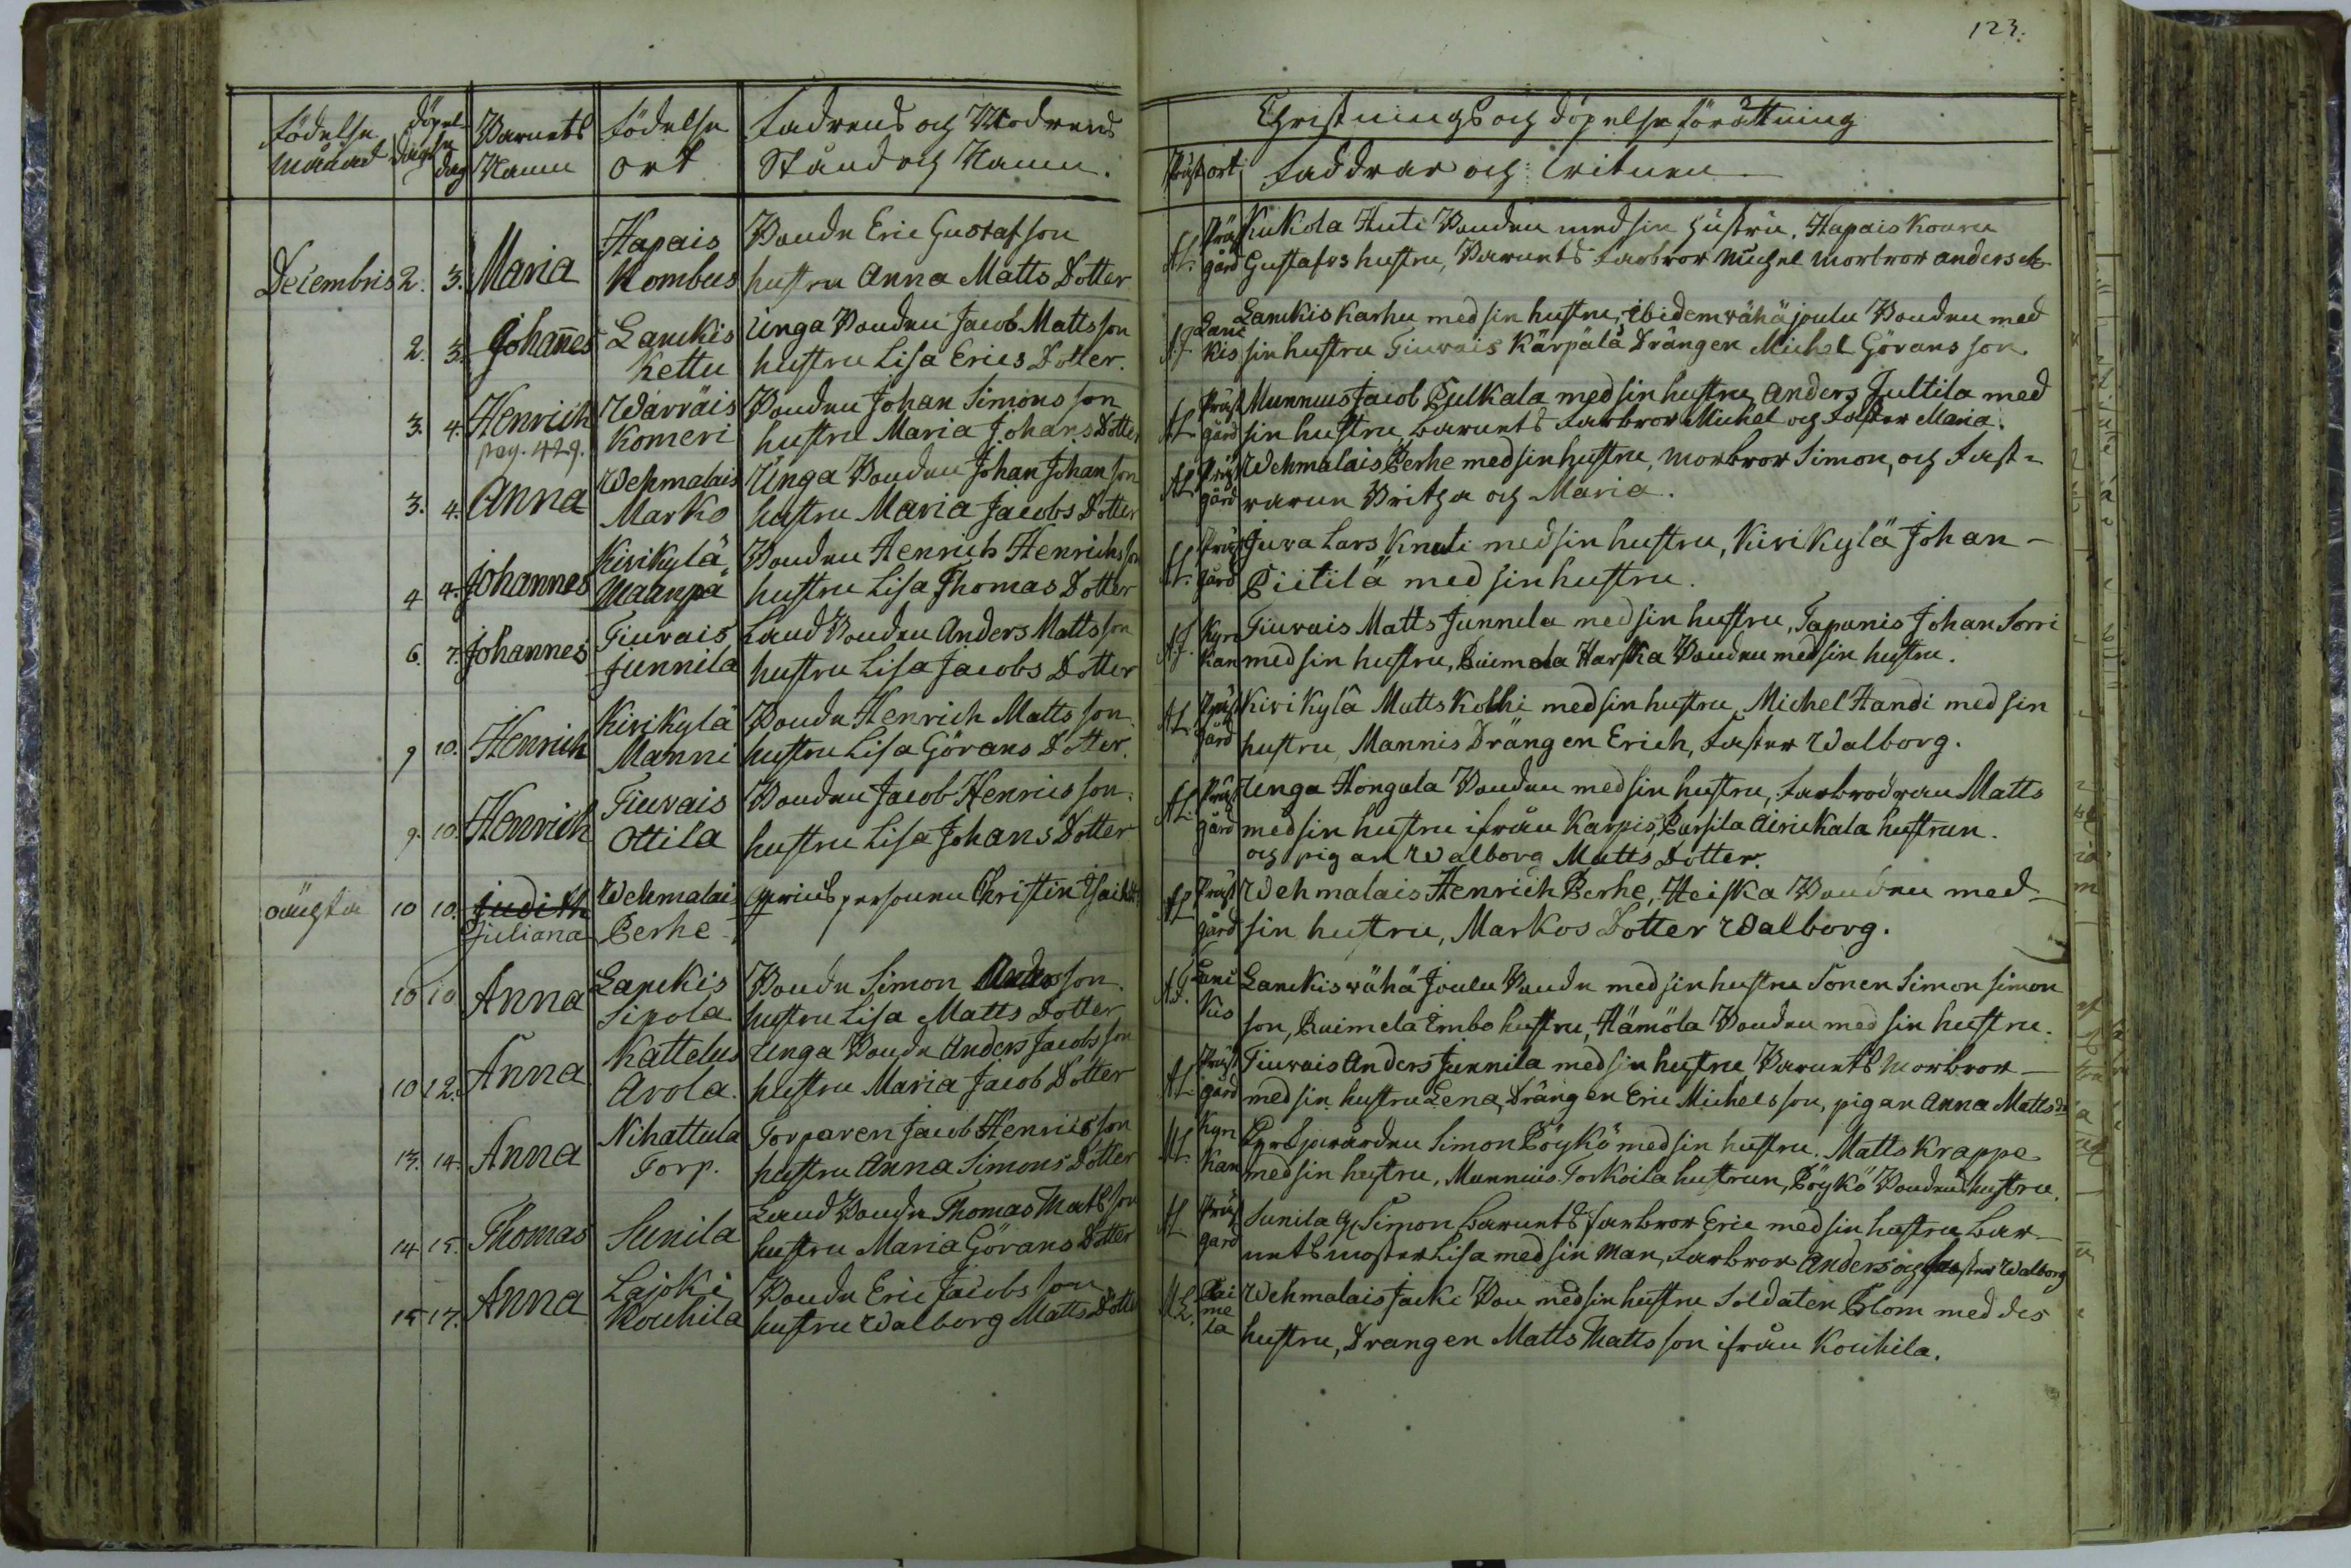 123.
födelse månad dag döpelse dag Barnets Namn födelse ort Fadrens och Modrens Stånd och Namn.
Christnings och döpelse förrättning
Präst ort Faddrar och witnen
Decembris 2. 3. Maria Hapais Kombus Bonde Eric Gustafson
hustru Anna Matts Dotter
A.L. Präst gård Kukola Huti Bonden med sin hustru, Hapais Kouru
Gustafvs hustru, Barnets Farbror Michel Morbror anders
2. 3. Johañes Lanckis Kettu Unga Bonden Jacob Mattsson
hustru Lisa Erics Dotter.
A.J. Lanc kis Lanckis Karhu med sin hustru, ibidem wähä joulu Bonden med
sin hustru Tiuvais Kärpälä Drängen Michel Görans son.
3. 4. Henrich pag. 429. Wärväis Komeri Bonden Johan Simons son
hustru Maria Johans Dotter
A.L. Präst gård Munnus Jacob Pulkala med sin hustru Anders Jultila med
sin hustru Barnets Farbror Michel och Faster Maria.
3. 4. Anna Wehmalais Marko Unga Bonden Johan Johanson
hustru Maria Jacobs Dotter
A.L. Präst gård Wehmalais Perhe med sin hustru, morbror Simon, och Fast-
rarne Britha och Maria.
4 4. Johannes Kivikylä Maanpä Bonden Henrich Henrichsson
hustru Lisa Thomas Dotter
A.L. Präst gård Juva Lars Knuti med sin hustru, Kivikylä Johan -
Piitilä med sin hustru.
6. 7. Johannes Tiuvais Junnila Land Bonden Anders Mattsson
hustru Lisa Jacobs Dotter
A.J. Kyrc kan Tiuvais Matts Junnila med sin hustru, Tapanis Johan Sorri
med sin hustru, Raimela Harska Bonden med sin hustru.
9 10. Henrich Kivikylä Manni Bonde Henrich Matts son
hustru Lisa Görans Dotter.
A.L. Präst gård Kivikylä Matts Kolhi med sin hustru, Michel Handi med sin
hustru, Mannis Drängen Erich, Faster Walborg.
9. 10. Henrich Tiuvais Ottila Bonden Jacob Henrics son
hustru Lisa Johans Dotter
A.L. Präst gård Unga Hongala Bonden med sin hustru, Farbrodren Matts
med sin hustru ifrån Karpis, Pursila Airickala hustrun.
och pigan Walborg Matts Dotter.
oäugta 10 10. Judith Juliana Wehmalais Perhe qwinspersonen Christin
A.L. Präst gård Wehmalais Henrich Perhe, Heiska Bonden med
sin hustru, Markos Dotter Walborg.
10 10 Anna Lanckis Sipola Bonde Simon Andersson.
hustru Lisa Matts Dotter
A.J. Lanc kis Lanckis wähä Joulu Bonde med sin hustru Sonen Simon Simon
son, Raimela Embo hustru, Hämöla Bonden med sin hustru.
10 12. Anna Kattelus Avola. Unga Bonde Anders Jacobsson
hustru Maria Jacob Dotter
A.L. Präst gård Tiuvais Anders Junnila med sin hustru Barnets Morbror
med sin hustru Lena, Drängen Eric Michelsson, pigan Anna Matts dr
13. 14. Anna Nihattula Torp. Torparen Jacob Henricsson
hustru Anna Simons Dotter
A.L. Kyrc kan Simon Pöykö med sin hustru. Matts Krappe
med sin hustru, Munnius Torkoila hustrun, Pöykö Bondens hustru.
14 15. Thomas Sunila Land Bonde Thomas Matsson
hustru Maria Görans Dotter
A.L. Präst gard Sunila Simon Barnets Farbror Eric med sin hustru Bar-
nets moster Lisa med sin Man, Farbror Anders och Faster Walborg
15 17. Anna Lajoki Kouhila Bonde Eric Jacobs son
hustru Walborg Matts Dotter
A.L. Rai me la Wehmalais Jacki Bon med sin hustru Soldaten Blom med des
hustru, Drangen Matts Matts son ifrån Kouhila.